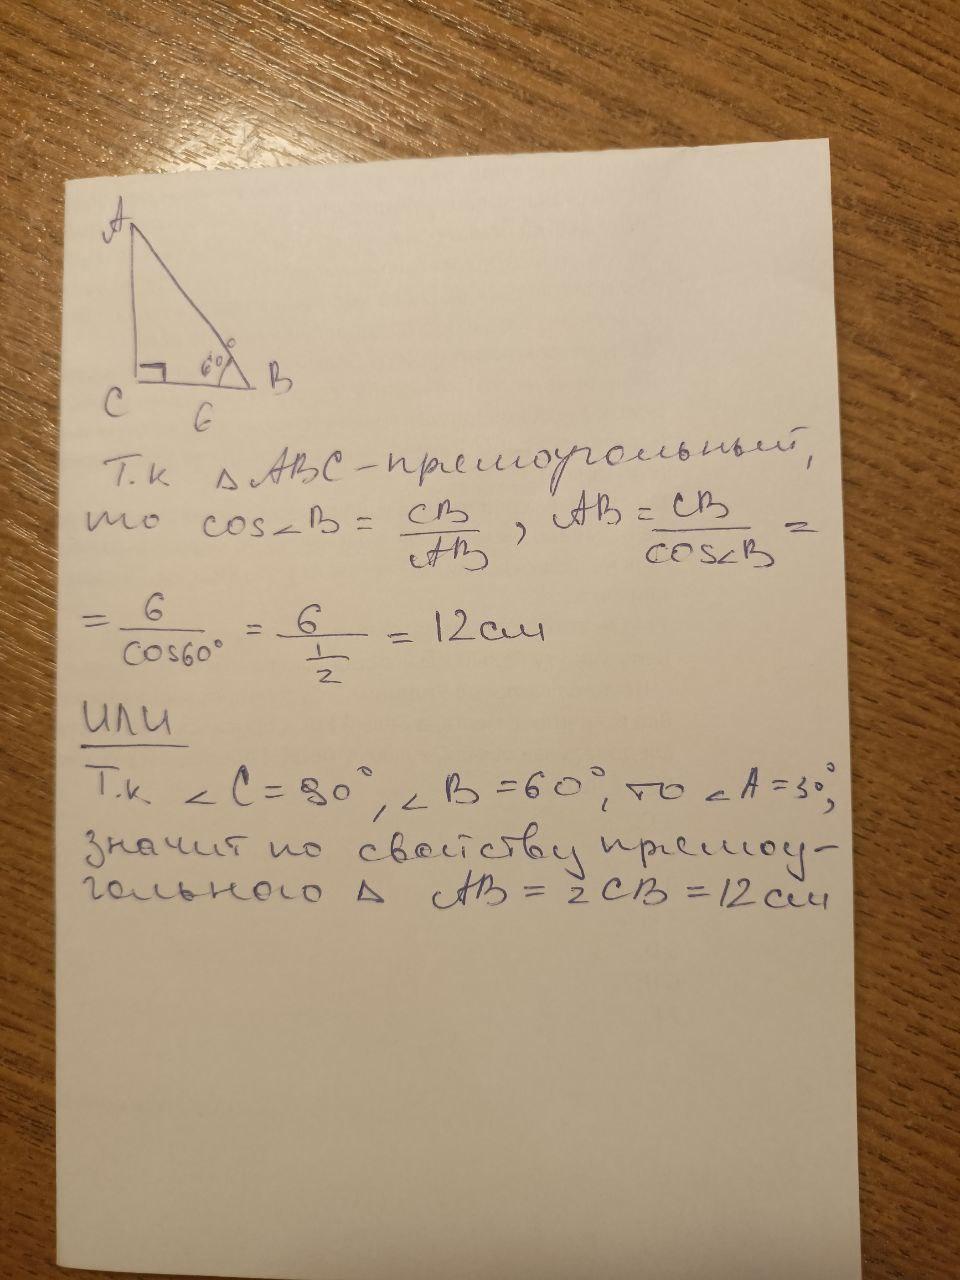 A
60°
C
B
6
Т.к △ABC - прямоугольный,
то cos∠B = CB/AB , AB = CB/cos∠B =
= 6/cos60° = 6/(1/2) = 12см
ИЛИ
Т.к ∠C=90°, ∠B=60°, то ∠A=30°,
значит по свойству прямоу-
гольного △ AB = 2CB = 12см